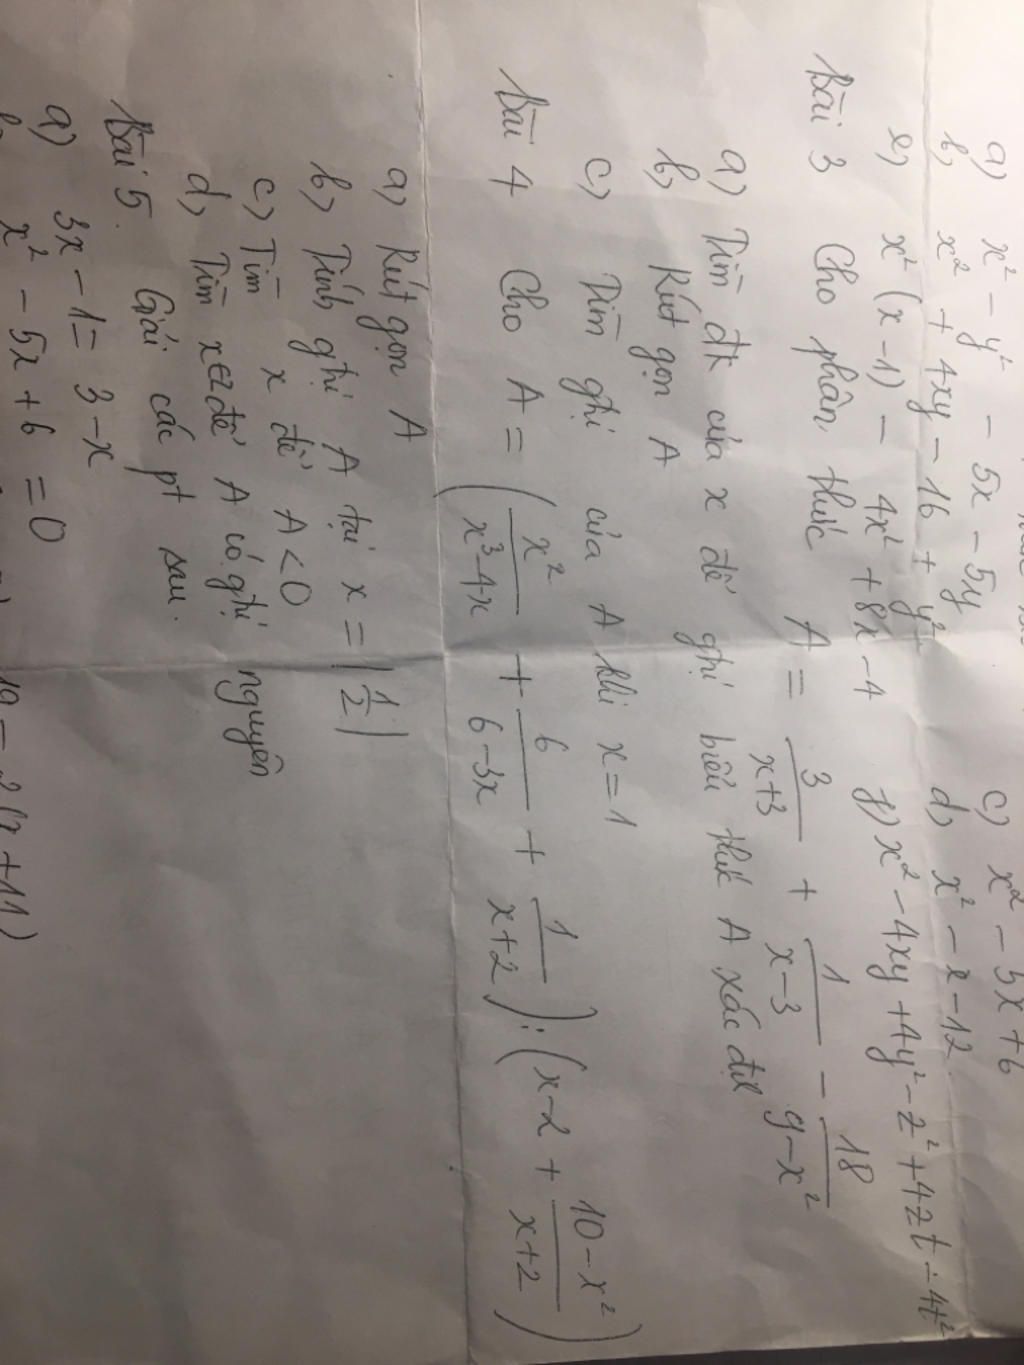 a) x² - y² - 5x - 5y
c) x² - 5x + 6
b) x² + 4xy - 16 + y²
d) x² - x - 12
e) x²(x-1) - 4x² + 8x - 4
f) x² - 4xy + 4y² - z² + 4zt - 4t²
Bài 3 Cho phân thức A = 3/(x+3) + 1/(x-3) - 18/(9-x²)
a) Tìm đk của x để giá biểu thức A xác địh
b) Rút gọn A
c) Tìm giá của A khi x = 1
Bài 4 Cho A = (x²/(x³-4x) + 6/(6-3x) + 1/(x+2)) : (x-2 + (10-x²)/(x+2))
a) Rút gọn A
b) Tính giá A tại x = |1/2|
c) Tìm x để A < 0
d) Tìm x∈Z để A có giá nguyên
Bài 5. Giải các pt sau.
a) 3x - 1 = 3 - x
x² - 5x + 6 = 0
19 - 2(x + 11)